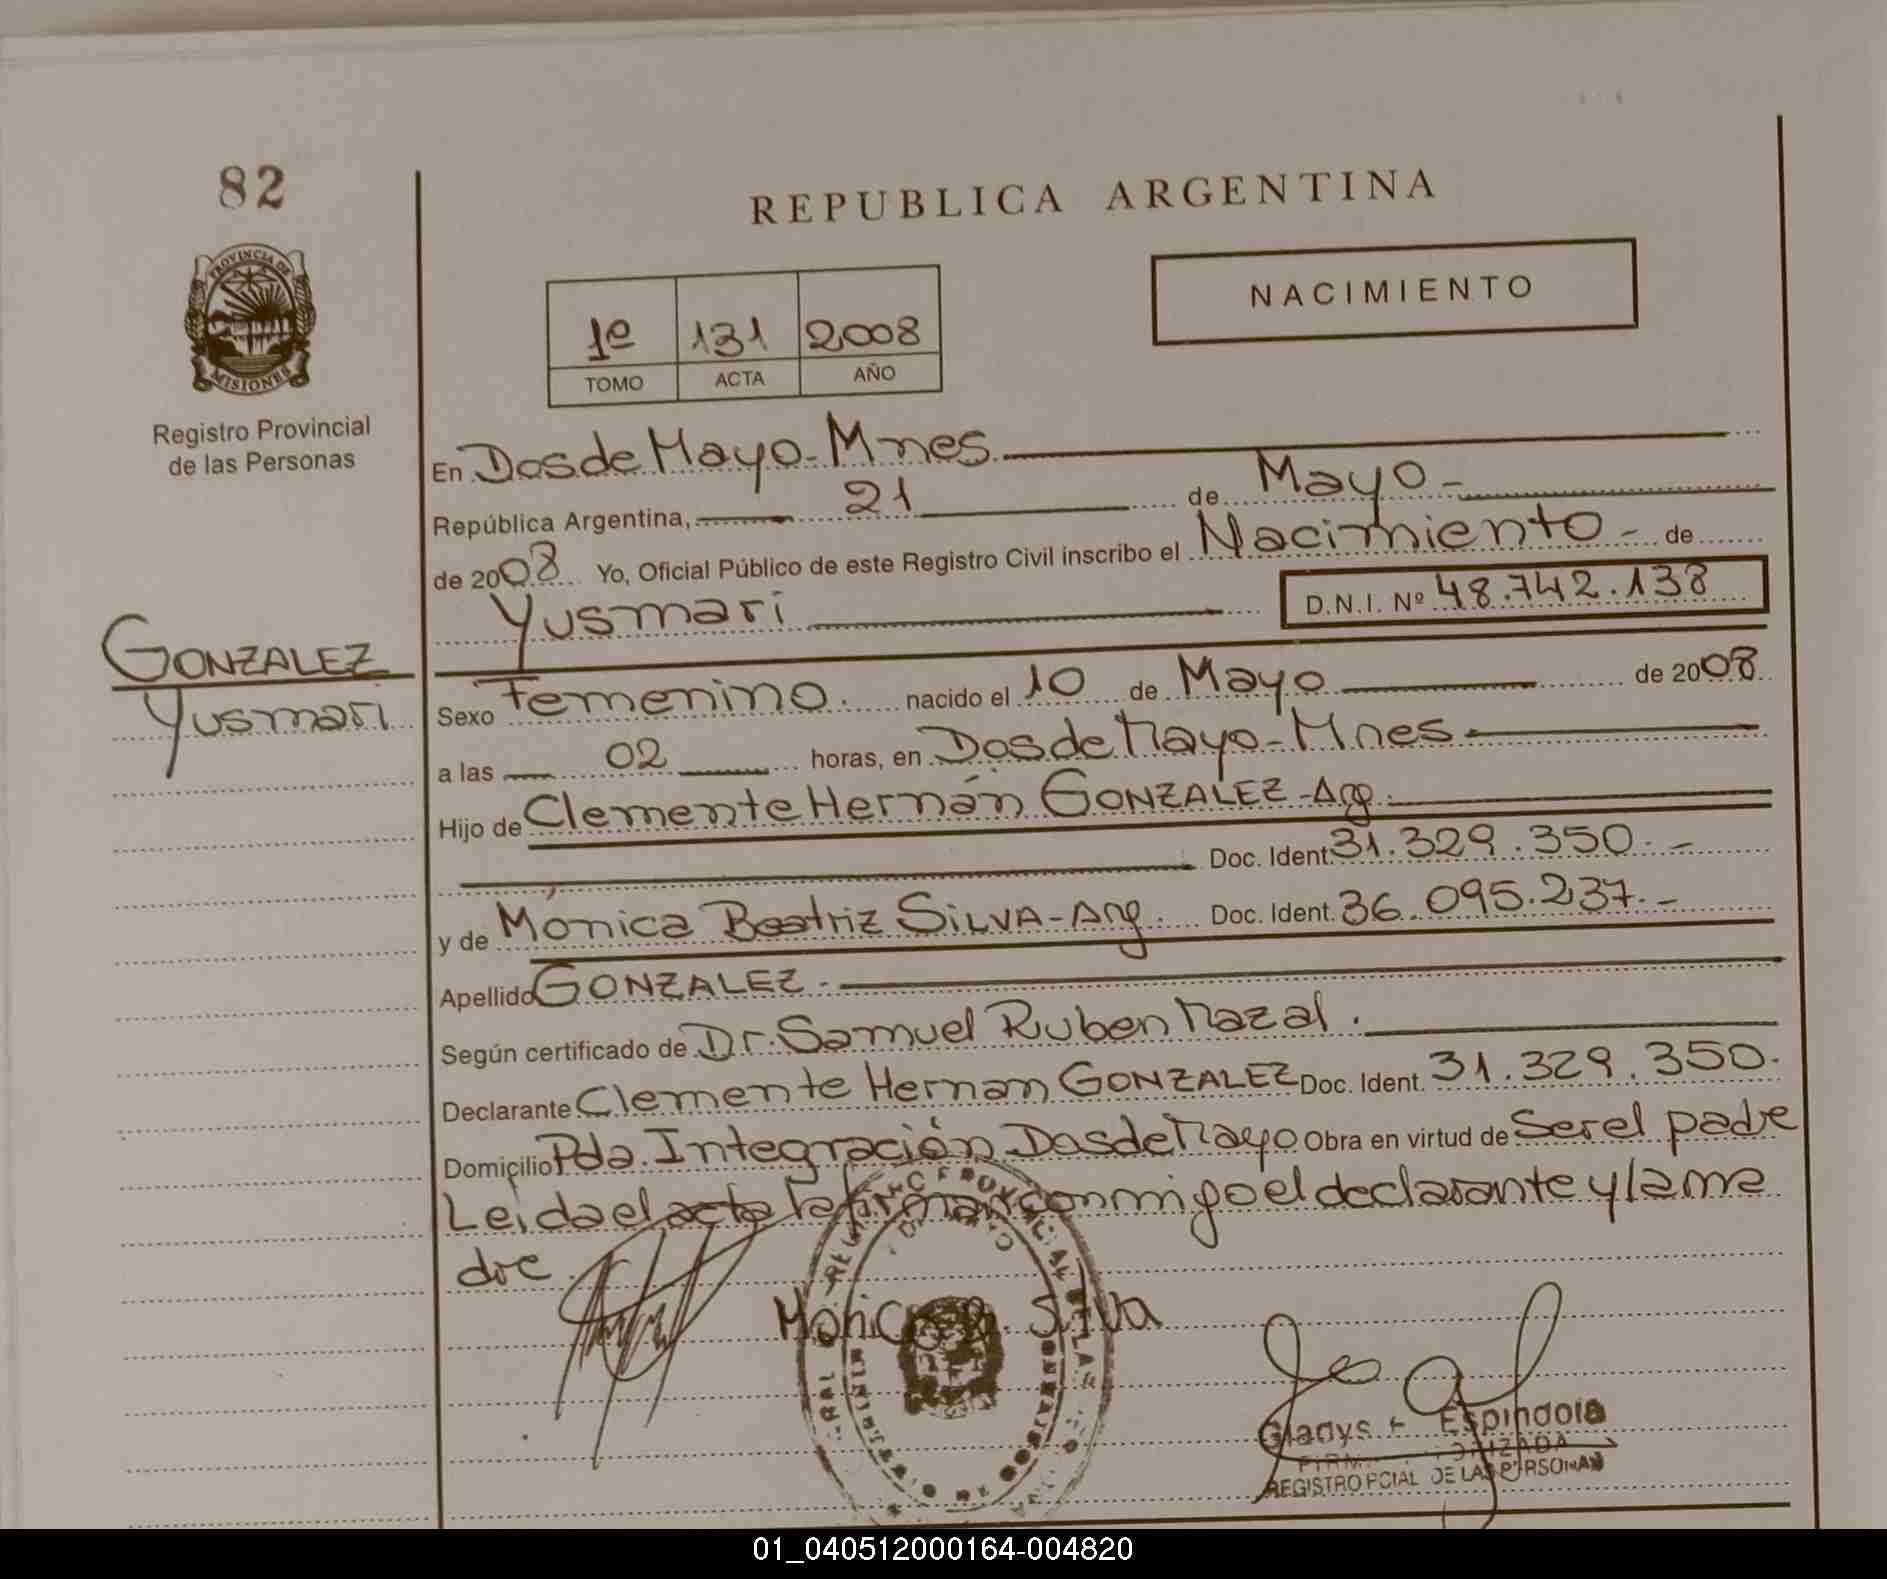 82
REPUBLICA ARGENTINA
PROVINCIA DE
MISIONES
NACIMIENTO
1º 131 2008
TOMO ACTA AÑO
Registro Provincial
de las Personas
En Dos de Mayo - Mnes
República Argentina, 21 de Mayo -
de 2008 Yo, Oficial Público de este Registro Civil inscribo el Nacimiento - de
Yusmari D.N.I. Nº 48.742.138
GONZALEZ
Yusmari
Sexo Femenino. nacido el 10 de Mayo de 2008
a las 02 horas, en Dos de Mayo - Mnes
Hijo de Clemente Hernán GONZALEZ - Arg.
Doc. Ident. 31.329.350.-
y de Mónica Beatriz SILVA - Arg. Doc. Ident. 36.095.237.-
Apellido GONZALEZ.
Según certificado de Dr. Samuel Ruben Mazal.
Declarante Clemente Hernan GONZALEZ Doc. Ident. 31.329.350.
Domicilio Pda. Integración Dos de Mayo Obra en virtud de Ser el padre
Leida el acta la firman conmigo el declarante y la ma
dre.
Monica B. Silva
Gladys Espindola
REGISTRO PCIAL DE LAS PERSONAS
01_040512000164-004820